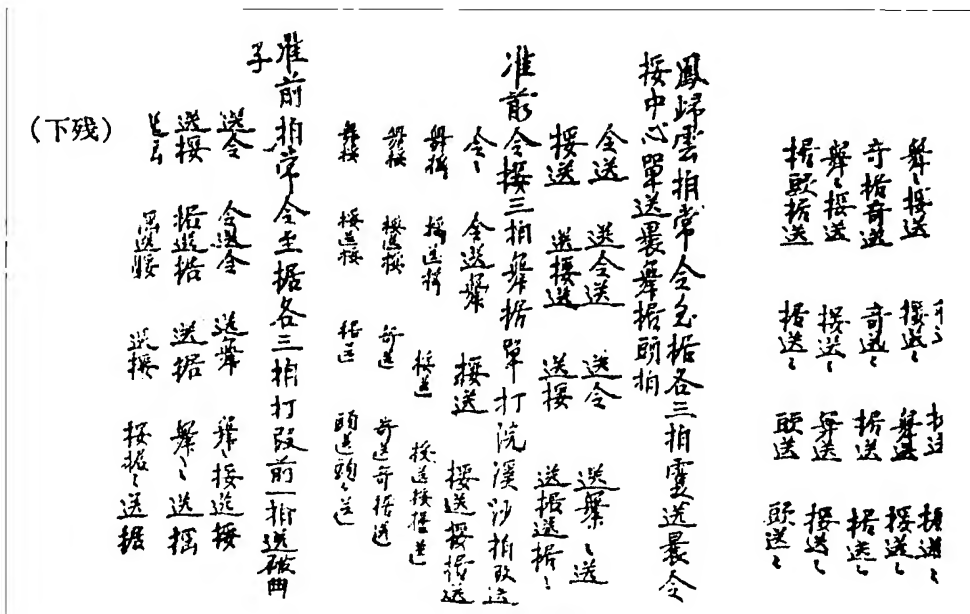 舞々挼送 挼送々 舞送 挼送々
奇据奇送 奇送々 据送 据送々
舞々挼送 挼送々 舞送 挼送々
据頭据送 据送々 頭送 頭送々
鳳歸雲拍常令至据各三拍 送 令
挼中心單送 舞据頭拍
令送 送令送 送令 送舞々送
挼送 送挼送 送挼 送据送据々
准前令挼三拍舞据單打浣溪沙拍改送
令々 令送舞 挼送 挼送挼据送
舞挼 挼送挼 挼送 挼送挼据送
舞挼 挼送挼 奇送 奇送奇据送
舞挼 挼送挼 据送 頭送頭々送
准前拍常令至据各三拍打段前一拍送破曲
子
送令 令送令 送舞 舞々挼送挼
送挼 据送据 送据 舞々送据
送挼 挼据々送据
(下残)